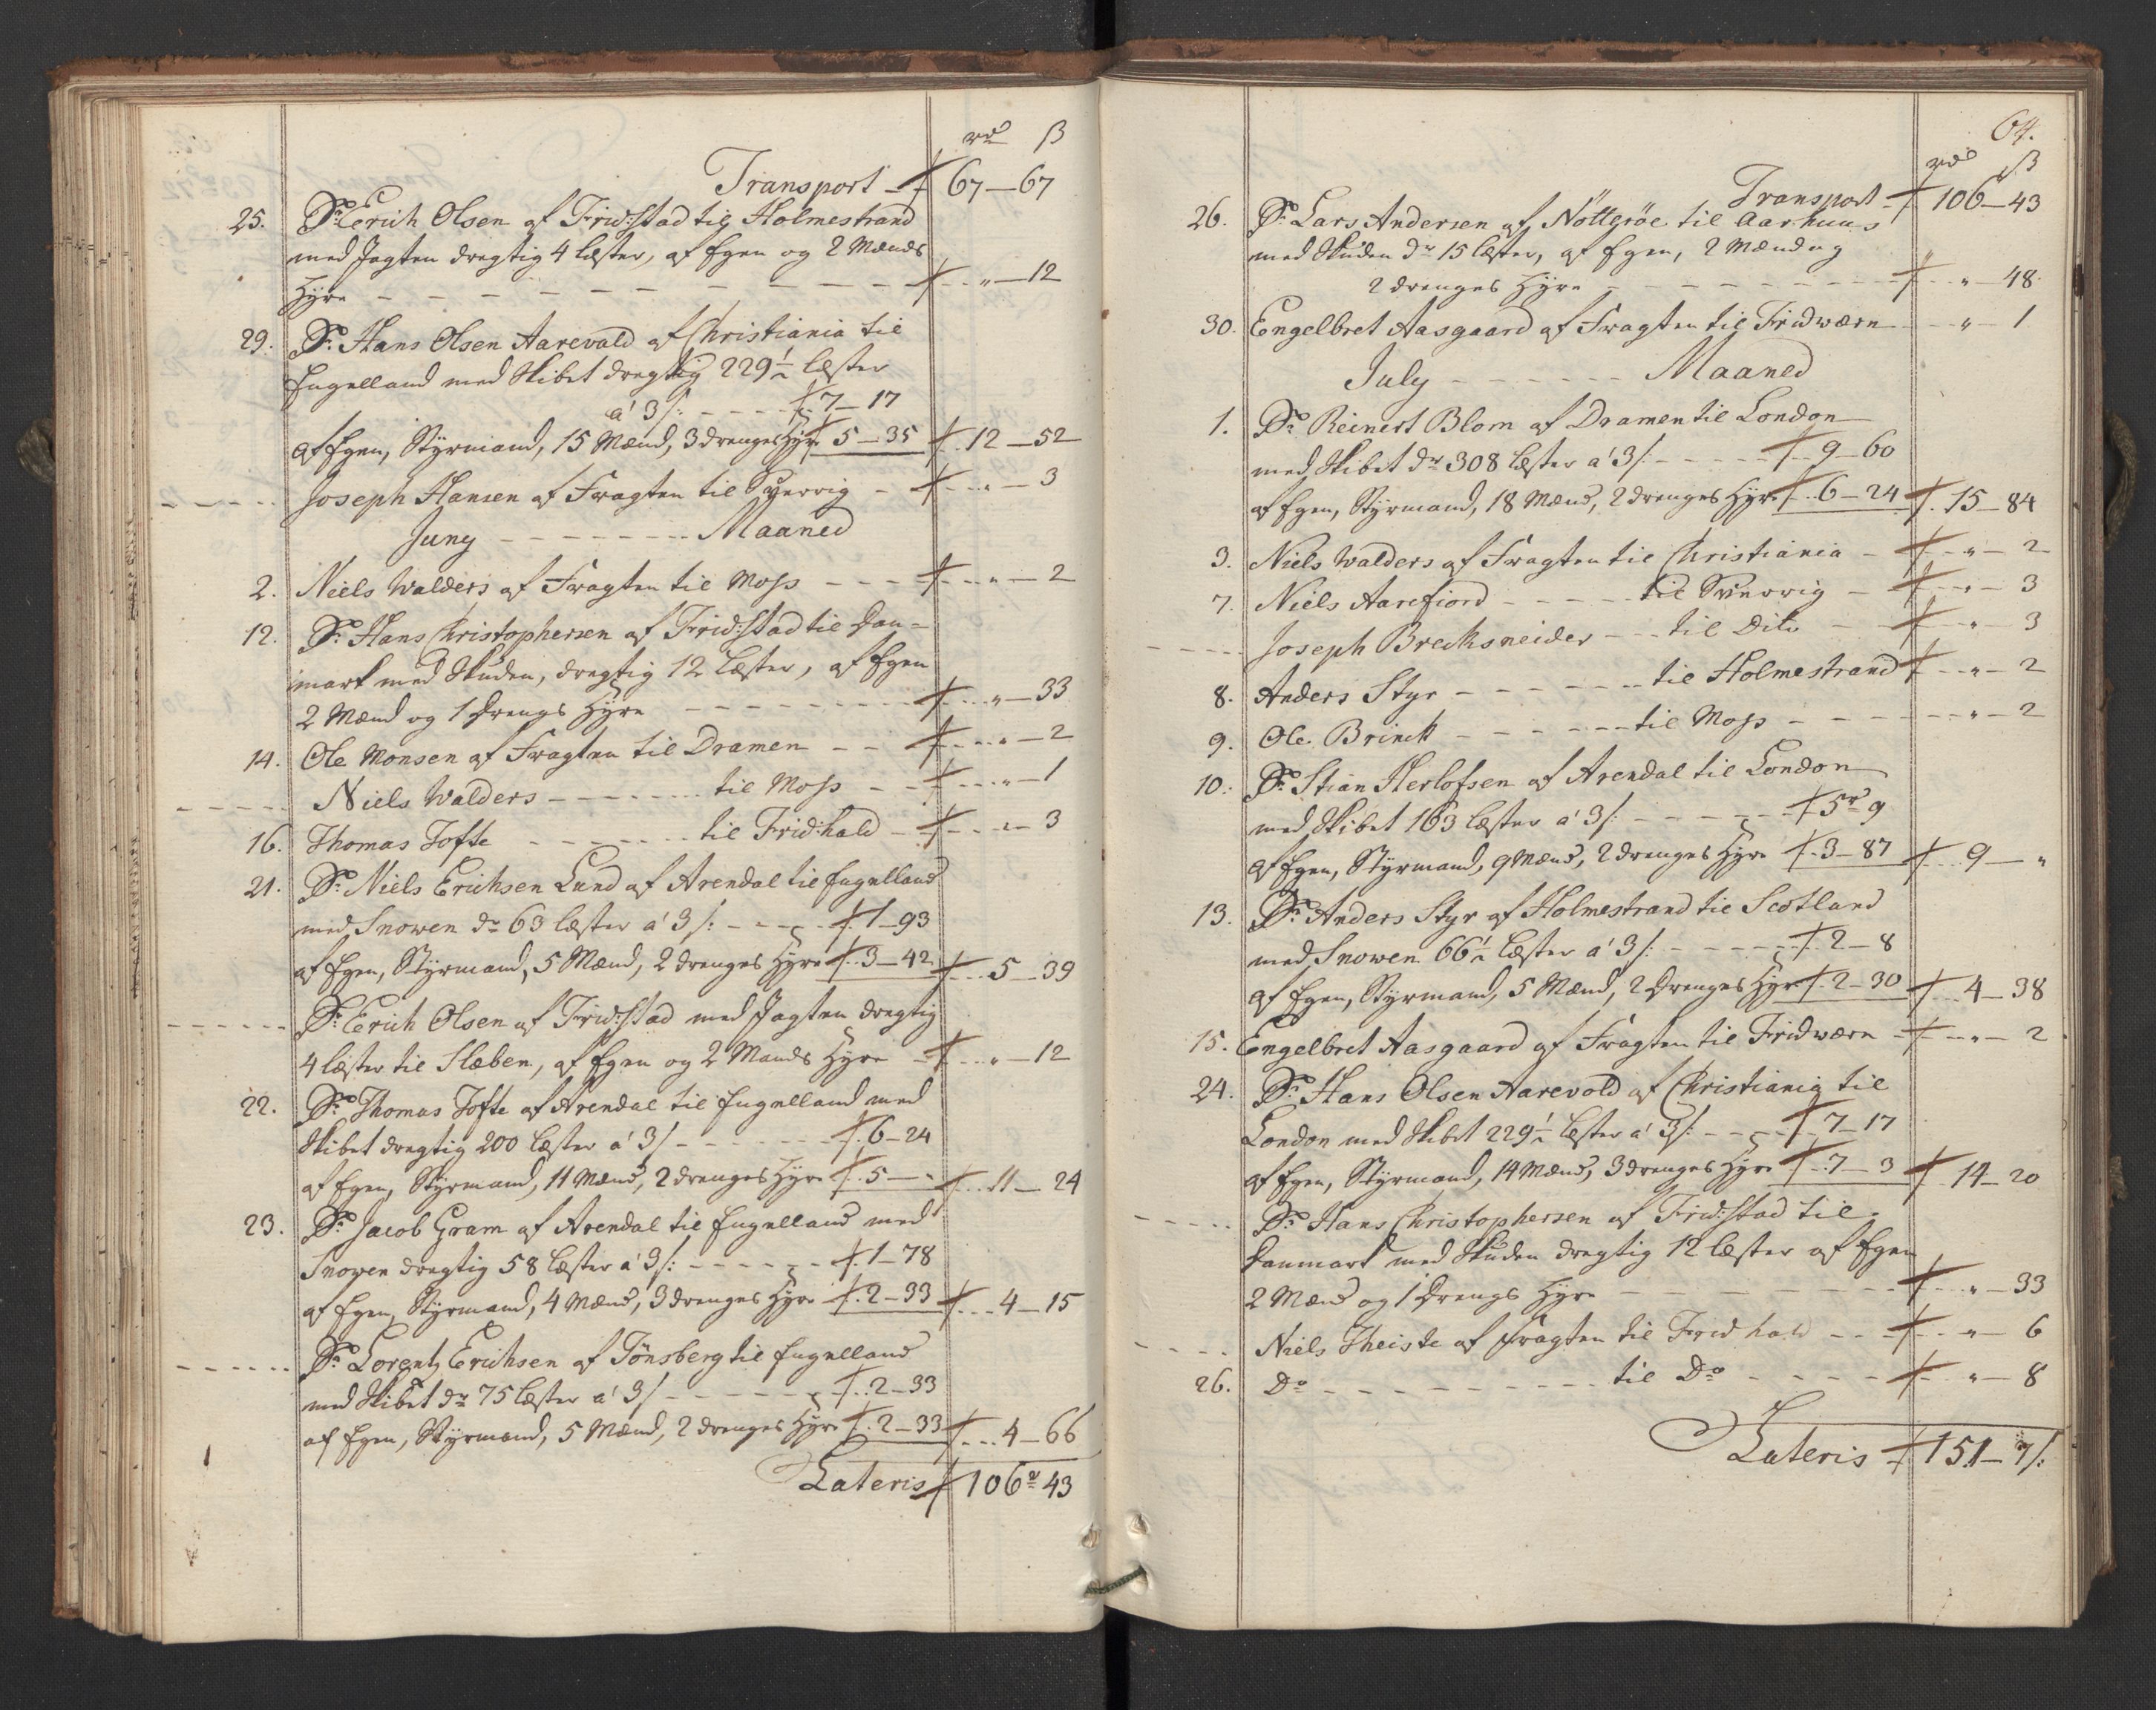 rd ẞ
Transport - 67 — 67
25. Sr Erich Olsen af Frid:stad til Holmestrand
med Jagten drægtig 4 læster, af Egen og 2 Mænds
Hÿre - - - - - - - - - - „ — 12
29. Sr Hans Olsen Aarevold af Christiania til
Engelland med Skibet drægtig 229½ læster
a' 3 /: - - - - 7 — 17
af Egen, Stÿrmand, 15 Mænd, 3 drenges Hÿre 5 — 35 12 — 52
- - - - Joseph Hansen af Fragten til Sverrig - „ — 3
Juny - - - - - - - - Maaned
2. Niels Walders af Fragten til Moss - - - - „ — 2
12. Sr Hans Christophersen af Frid:stad til Dan-
mark med Skuden, drægtig 12 læster, af Egen
2 Mænd og 1 Drengs Hÿre - - - - - - - - „ — 33
14. Ole Monsen af Fragten til Dramen - - „ — 2
- - - - Niels Walders - - - - - - - til Moss - - „ — 1
16. Thomas Tofte - - - - - - - til Frid:hald - „ — 3
21. Sr Niels Erichsen Lund af Arendal til Engelland
med Snowen dr 63 læster a' 3 /: - - - - 1 — 93
af Egen, Stÿrmand, 5 Mænd, 2 drenges Hÿre 3 — 42 5 — 39
- - - - Sr Erich Olsen af Frid:stad med Jagten drægtig
4 læster til Slæben, af Egen og 2 Mands Hÿre - „ — 12
22. Sr Thomas Tofte af Arendal til Engelland med
Skibet drægtig 200 læster a' 3/ - - - - - - 6 — 24
af Egen, Stÿrmand, 11 Mænd, 2 drenges Hÿre 5 — „ 11 — 24
23. Sr Jacob Gram af Arendal til Engelland med
Snowen drægtig 58 læster a' 3/: - - - - - - 1 — 78
af Egen, Stÿrmand, 4 Mænd, 3 drenges Hÿre 2 — 33 4 — 15
- - - - Sr Lorentz Erichsen af Tönsberg til Engelland
med Skibet dr 75 læster a' 3/ - - - - - - 2 — 33
af Egen, Stÿrmand, 5 Mænd, 2 drenges Hÿre 2 — 33 4 — 66
Lateris 106 r 43
64.
rd ẞ
Transport - 106 — 43
26. Sr Lars Andersen af Nötteröe til Aarhuus
med Skuden dr 15 læster, af Egen, 2 Mænd og
2 drenges Hÿre - - - - - - - - - „ — 48
30. Engelbret Aasgaard af Fragten til Fridwærn - - „ — 1
July - - - - - - - Maaned
1. Sr Reinert Blom af Dramen til London
med Skibet dr 308 læster a' 3/: - - - - - 9 — 60
af Egen, Stÿrmand, 18 Mænd, 2 drenges Hÿre 6 — 24 15 — 84
3. Niels Walders af Fragten til Christiania - „ — 2
7. Niels Aarefiord - - - - - til Sverrig - „ — 3
- - - - Joseph Brecksneider - - til Dito - „ — 3
8. Anders Styr - - - - - - - til Holmestrand „ — 2
9. Ole Brinck - - - - - - til Moss - - - - „ — 2
10. Sr Stian Herlofsen af Arendal til London
med Skibet 163 læster a' 3/: - - - - - - 5 r 9
af Egen, Stÿrmand, 9 Mænd, 2 drenges Hÿre 3 — 87 9 — „
13. Sr Anders Styr af Holmestrand til Scotland
med Snowen 66½ læster a' 3/: - - - - - - 2 — 8
af Egen, Stÿrmand, 5 Mænd, 2 Drenges Hÿre 2 — 30 4 — 38
15. Engelbret Aasgaard af Fragten til Fridwærn - „ — 2
24. Sr Hans Olsen Aarevold af Christiania til
London med Skibet 229½ læster a' 3/: - - - - 7 — 17
af Egen, Stÿrmand, 14 Mænd, 3 drenges Hÿre 7 — 3 14 — 20
- - - - Sr Hans Christophersen af Frid:stad til
Danmark med Skuden drægtig 12 læster af Egen
2 Mænd og 1 Drengs Hÿre - - - - - - - „ — 33
- - - - Niels Theiste af Fragten til Fridhald - - - „ — 6
26. Do - - - - - - - - - til Do - - - - „ — 8
Lateris 151 — 7/: